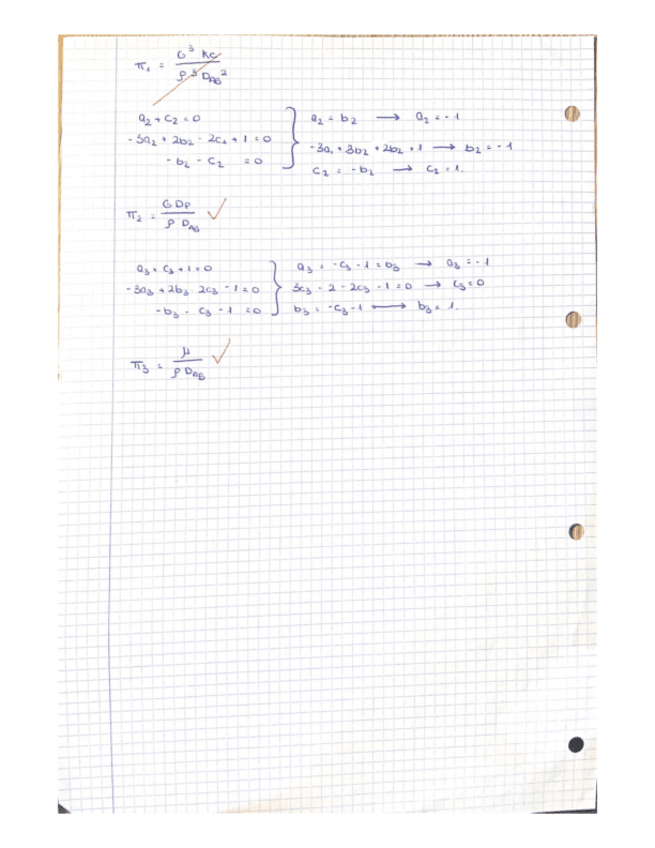 π₁ = G³ Kc / ρ³ D_AB²
a₂ + c₂ = 0
-3a₂ + 2b₂ - 2c₂ + 1 = 0
-b₂ - c₂ = 0
a₂ = b₂ → a₂ = -1
-3a₁ + 3b₂ + 2b₂ + 1 → b₂ = -1
c₂ = -b₂ → c₂ = 1.
π₂ = G Dp / ρ D_AB ✓
a₃ + c₃ + 1 = 0
-3a₃ + 2b₃ - 2c₃ - 1 = 0
-b₃ - c₃ - 1 = 0
a₃ = -c₃ - 1 = b₃ → a₃ = -1
3c₃ - 2 - 2c₃ - 1 = 0 → c₃ = 0
b₃ = -c₃ - 1 → b₃ = 1.
π₃ = μ / ρ D_AB ✓